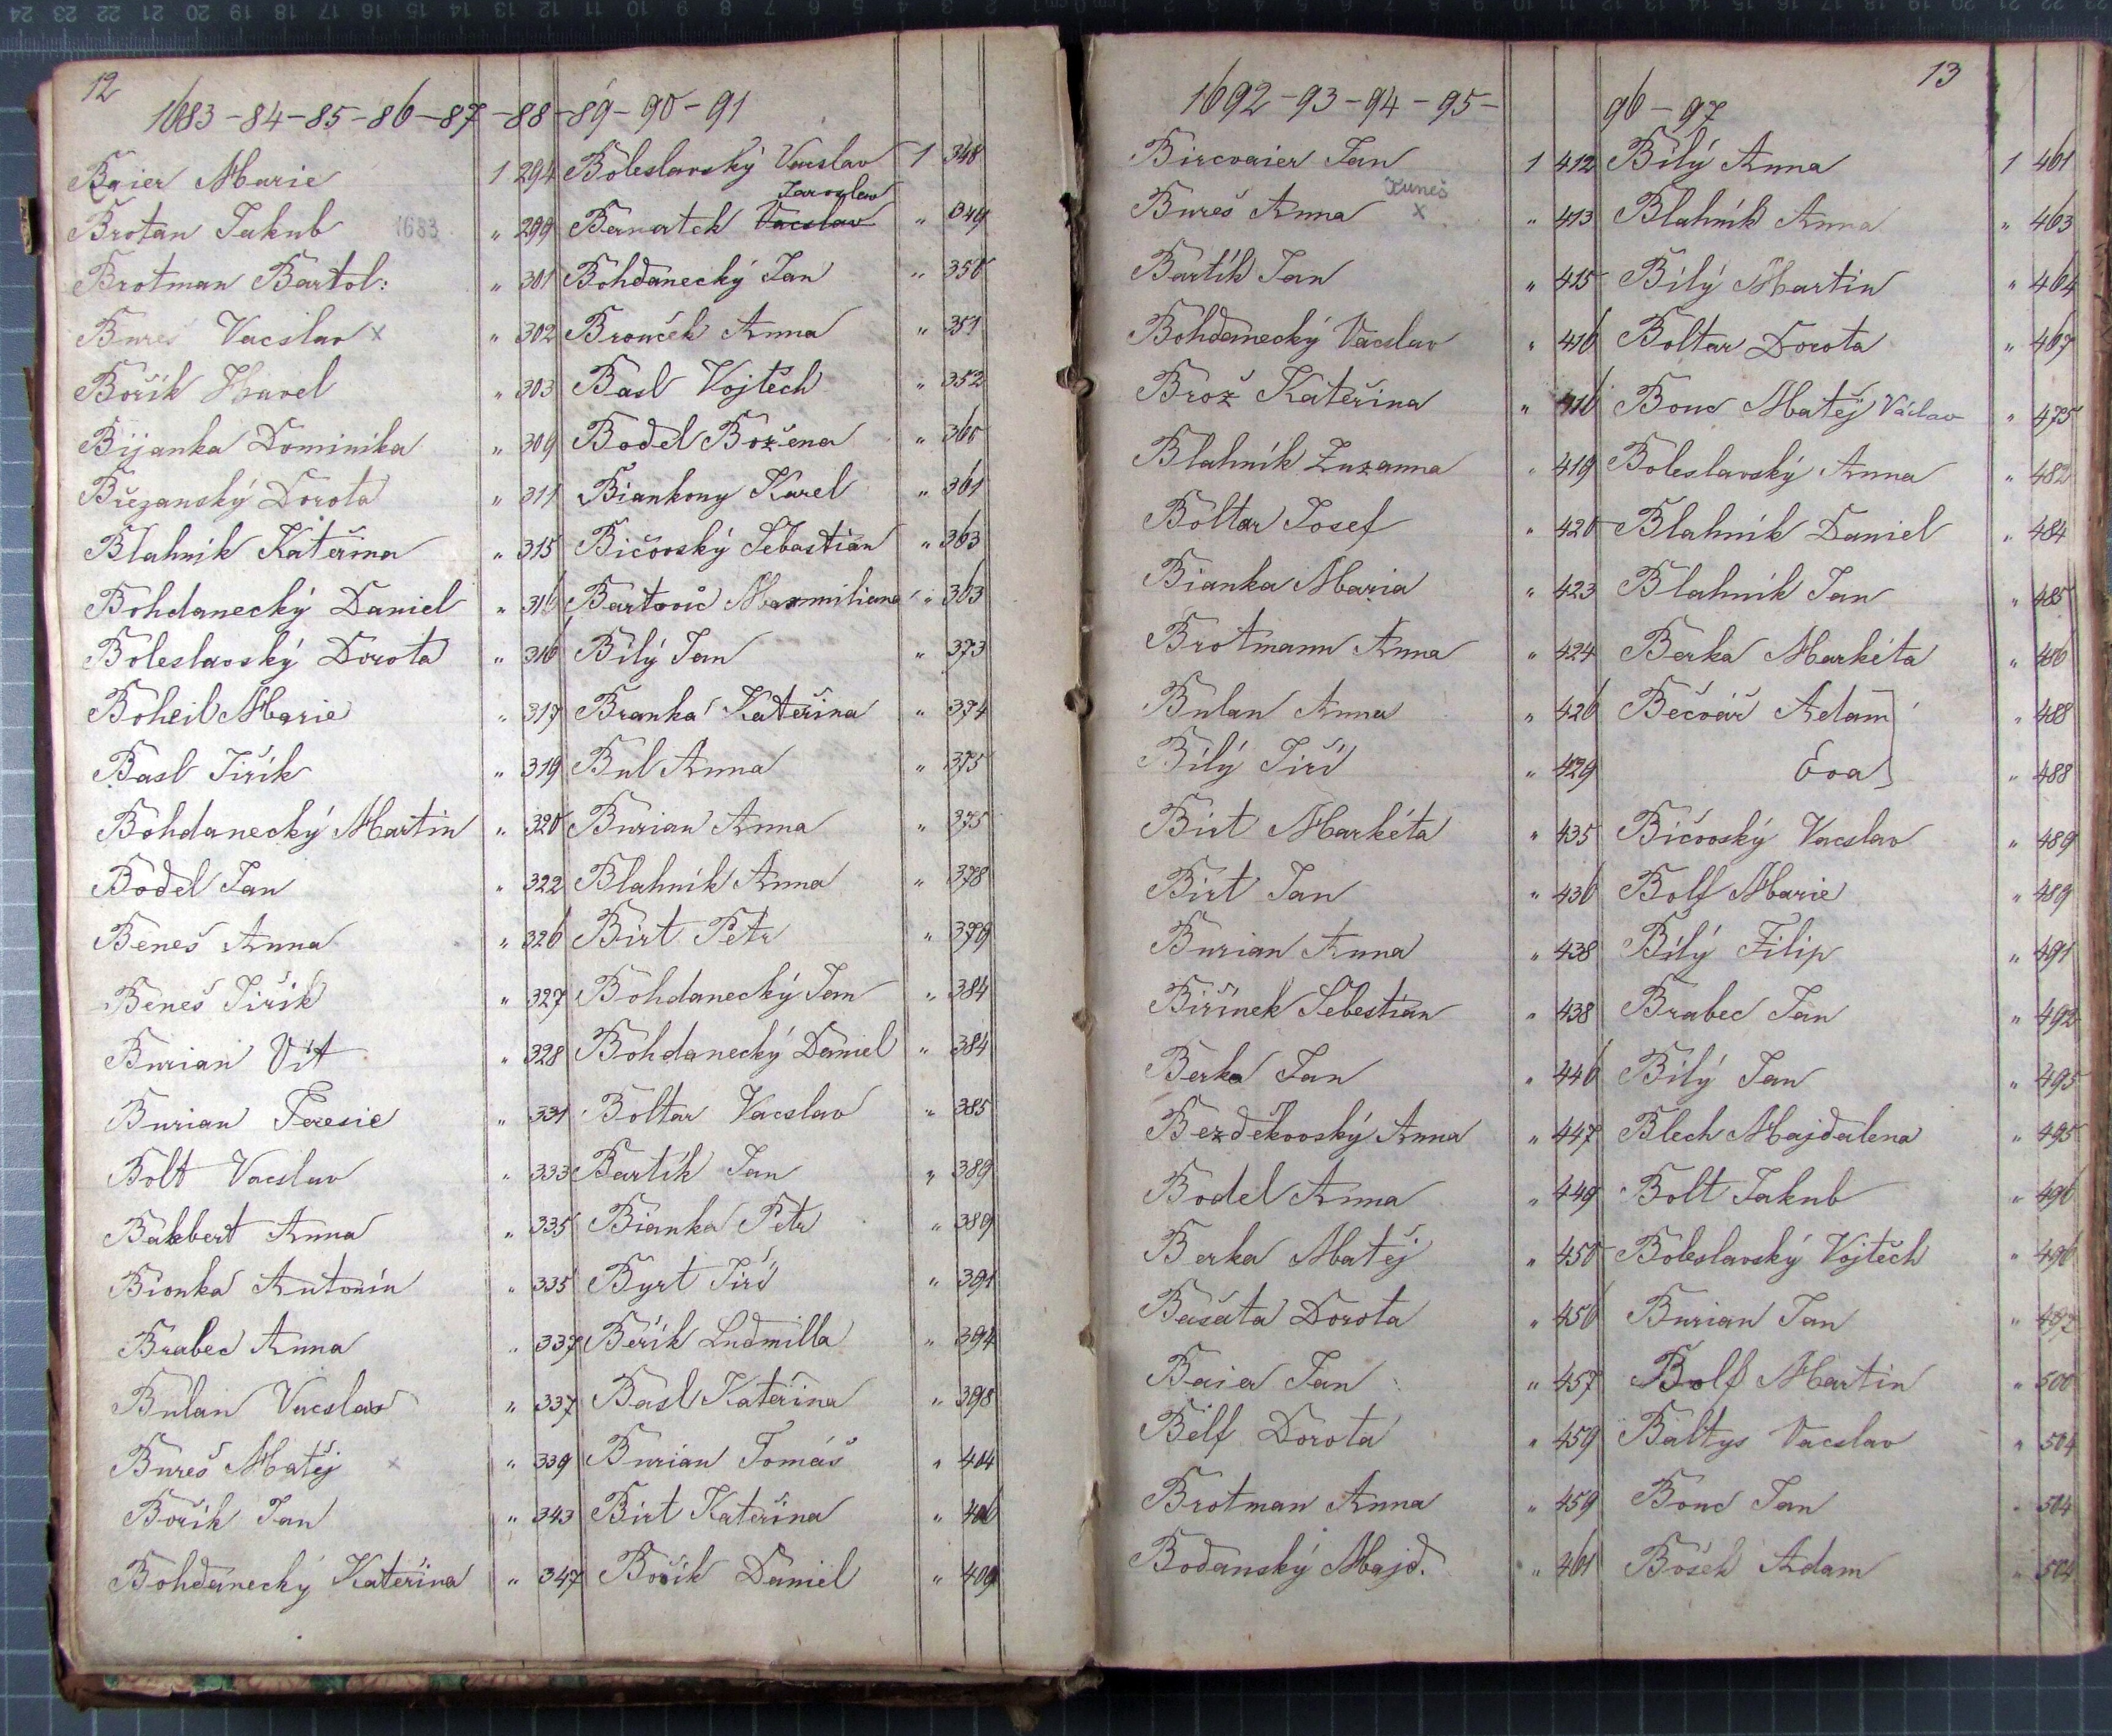 12
1683-84-85-86-87-88-89-90-91
Baier Marie 1 294
Brotan Jakub 1683 " 299
Brotman Bartol: " 301
Bureš Vacslav x " 302
Bořík Havel " 303
Bijanka Dominika " 309
Březanský Dorota " 311
Blahnik Kateřina " 315
Bohdanecký Daniel " 316
Boleslavský Dorota " 316
Boheil Marie " 317
Basl Jiřík " 319
Bohdanecký Martin " 320
Bodel Jan " 322
Beneš Anna " 326
Beneš Jiřík " 327
Burian Vít " 328
Burian Teresie " 331
Bolt Vacslav " 333
Bakbert Anna " 335
Bionka Antonín " 335
Brabec Anna " 337
Bulan Vacslav " 337
Bureš Matěj x " 339
Bořík Jan " 343
Bohdanecký Kateřina " 347
Boleslavský Vacslav 1 348
Jaroslav
Bernatek Vacslav " 349
Bohdanecký Jan " 350
Brouček Anna " 351
Basl Vojtěch " 352
Bodel Božena " 360
Biankony Karel " 361
Bičovský Sebastian " 363
Bartovic Maxmiliana " 363
Bílý Jan " 373
Branka Kateřina " 374
Bul Anna " 375
Burian Anna " 375
Blahnik Anna " 378
Birt Petr " 379
Bohdanecký Jan " 384
Bohdanecký Daniel " 384
Boltar Vacslav " 385
Bartík Jan " 389
Bianka Petr " 389
Byrt Jiří " 391
Beřík Ludmilla " 394
Basl Kateřina " 398
Burian Tomáš " 404
Birt Kateřina " 406
Bořík Daniel " 409
13
1692-93-94-95-96-97
Bircvaier Jan 1 412
Kuneš
Bureš Anna x " 413
Bartík Jan " 415
Bohdanecký Vacslav " 416
Brož Kateřina " 416
Blahník Zuzanna " 419
Boltar Josef " 420
Bianka Maria " 423
Brotmann Anna " 424
Bulan Anna " 426
Bílý Jiří " 429
Birt Markéta " 435
Birt Jan " 436
Burian Anna " 438
Biřinek Sebestian " 438
Berka Jan " 446
Bezděkovský Anna " 447
Bodel Anna " 449
Berka Matěj " 450
Bašata Dorota " 456
Baier Jan " 457
Belf Dorota " 459
Brotman Anna " 459
Bodanský Majd. " 461
Bílý Anna 1 461
Blahník Anna " 463
Bílý Martin " 464
Boltar Dorota " 467
Bouc Matěj Václav " 475
Boleslavský Anna " 482
Blahník Daniel " 484
Blahník Jan " 485
Berka Markéta " 486
Bečvář Adam " 488
Eva " 488
Bičovský Vacslav " 489
Bolf Marie " 489
Bílý Filip " 491
Brabec Jan " 492
Bílý Jan " 495
Blech Majdalena " 495
Bolt Jakub " 496
Boleslavský Vojtěch " 496
Burian Jan " 497
Bolf Martin " 500
Baltys Vacslav " 504
Bouc Jan " 504
Bošek Adam " 504